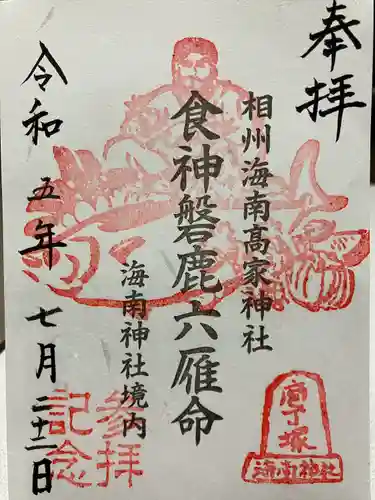 奉拝
相州海南高家神社
食神磐鹿六雁命
海南神社境内
令和五年七月二十二日
参拝
記念
庖丁塚
海南神社